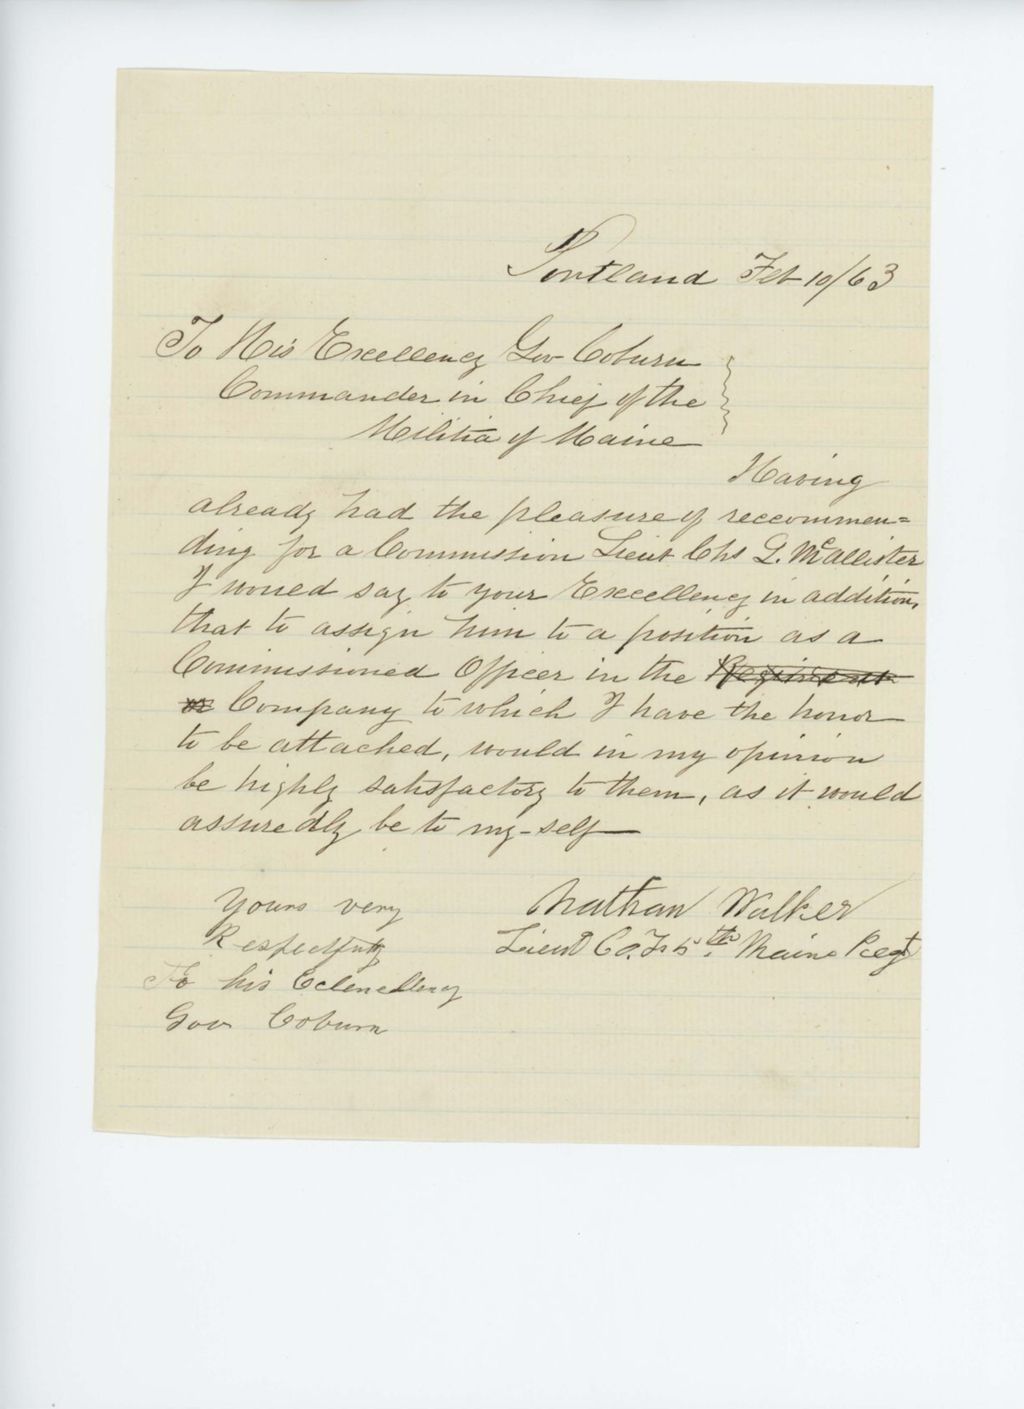 Portland Feb 10/63
To His Excellency Gov Coburn
Commander in Chief of the
Militia of Maine
Having
already had the pleasure of reccommen=
ding for a Commission Lieut Chs L. McAllister
I would say to your Excellency in addition,
that to assign him to a position as a
Commissioned Officer in the Regiment
or Company to which I have the honor
to be attached, would in my opinion
be highly satisfactory to them, as it would
assuredly be to my-self
Yours very Nathan Walker
Respectfully Lieut Co. F. 5th. Maine Regt
To his Eclencellency
Gov Coburn